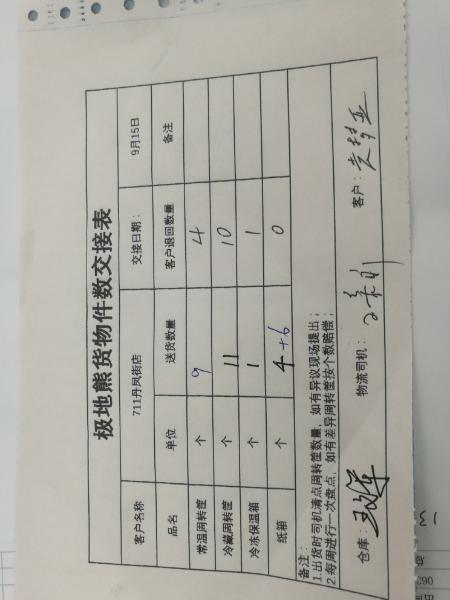 极地熊货物件数交接表
客户名称 711丹凤街店 交接日期： 9月15日
品名 单位 送货数量 客户退回数量 备注
常温周转筐 个 9 4
冷藏周转筐 个 11 10
冷冻保温箱 个 1 1
纸箱 个 4+6 0
备注：
1.出货时司机清点周转筐数量，如有异议现场提出；
2.每周进行一次盘点，如有差异周转筐按个数赔偿；
仓库： 物流司机： 客户：
13